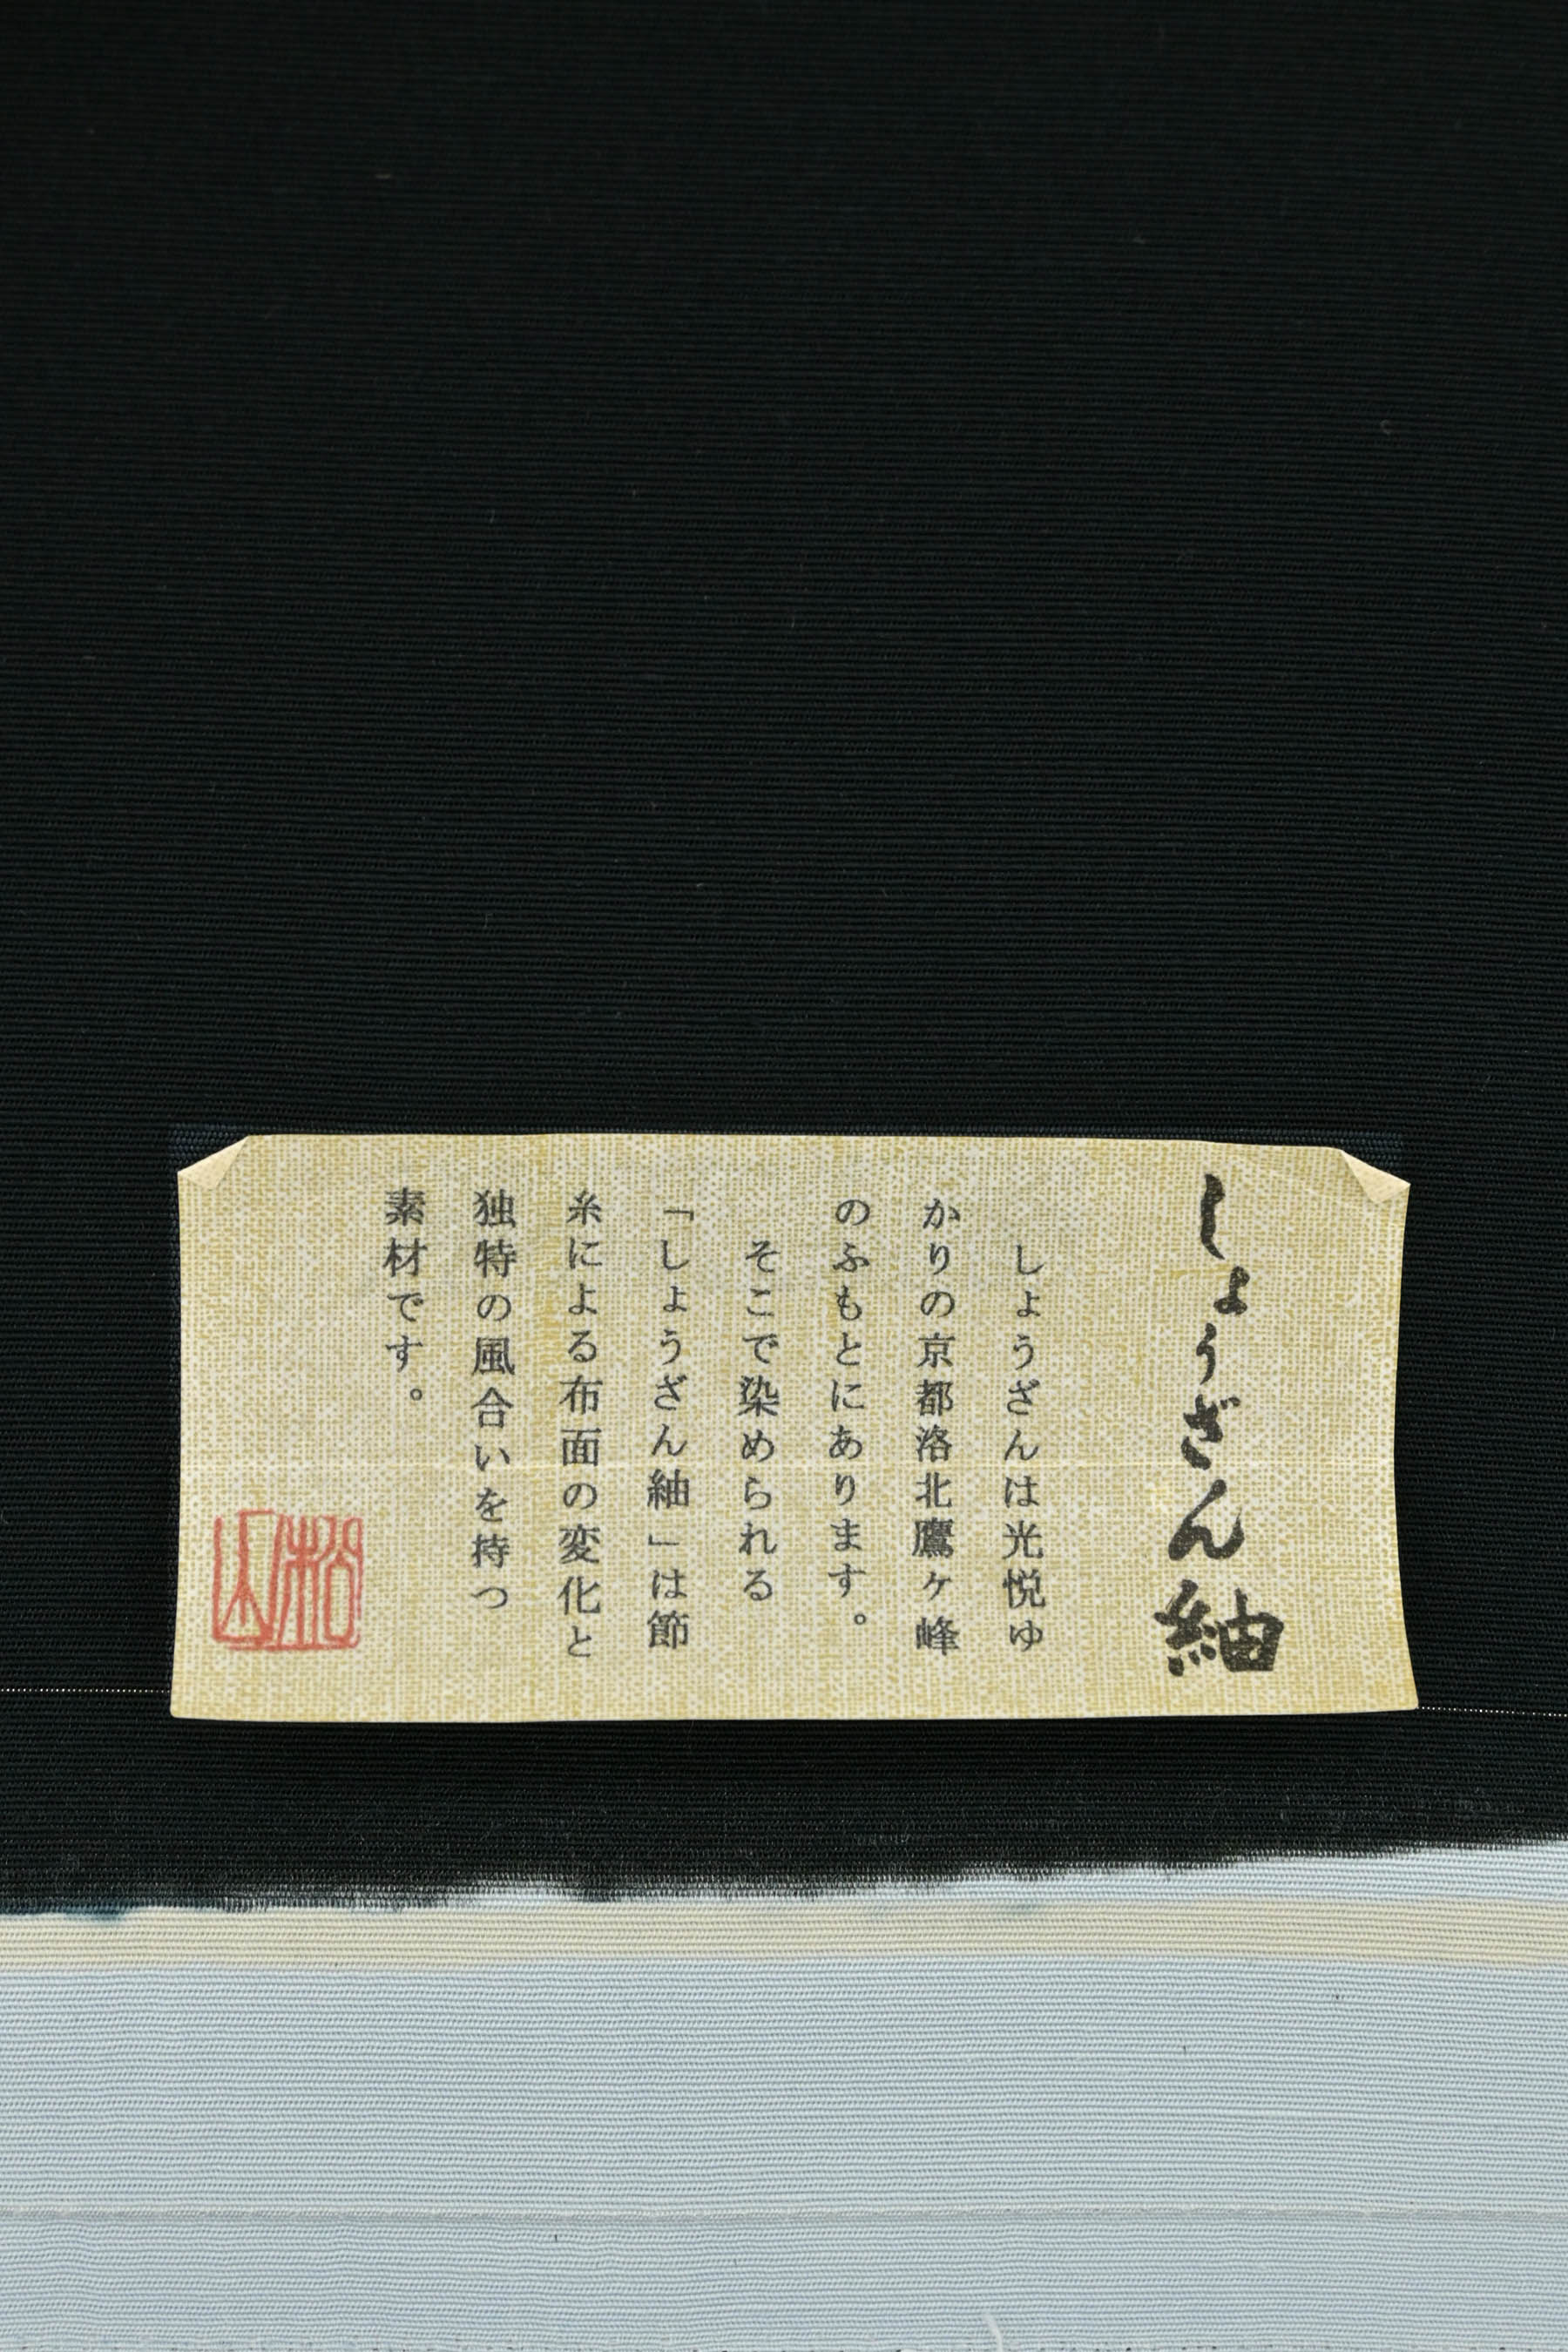 しょうざん紬
しょうざんは光悦ゆ
かりの京都洛北鷹ヶ峰
のふもとにあります。
そこで染められる
「しょうざん紬」は節
糸による布面の変化と
独特の風合いを持つ
素材です。